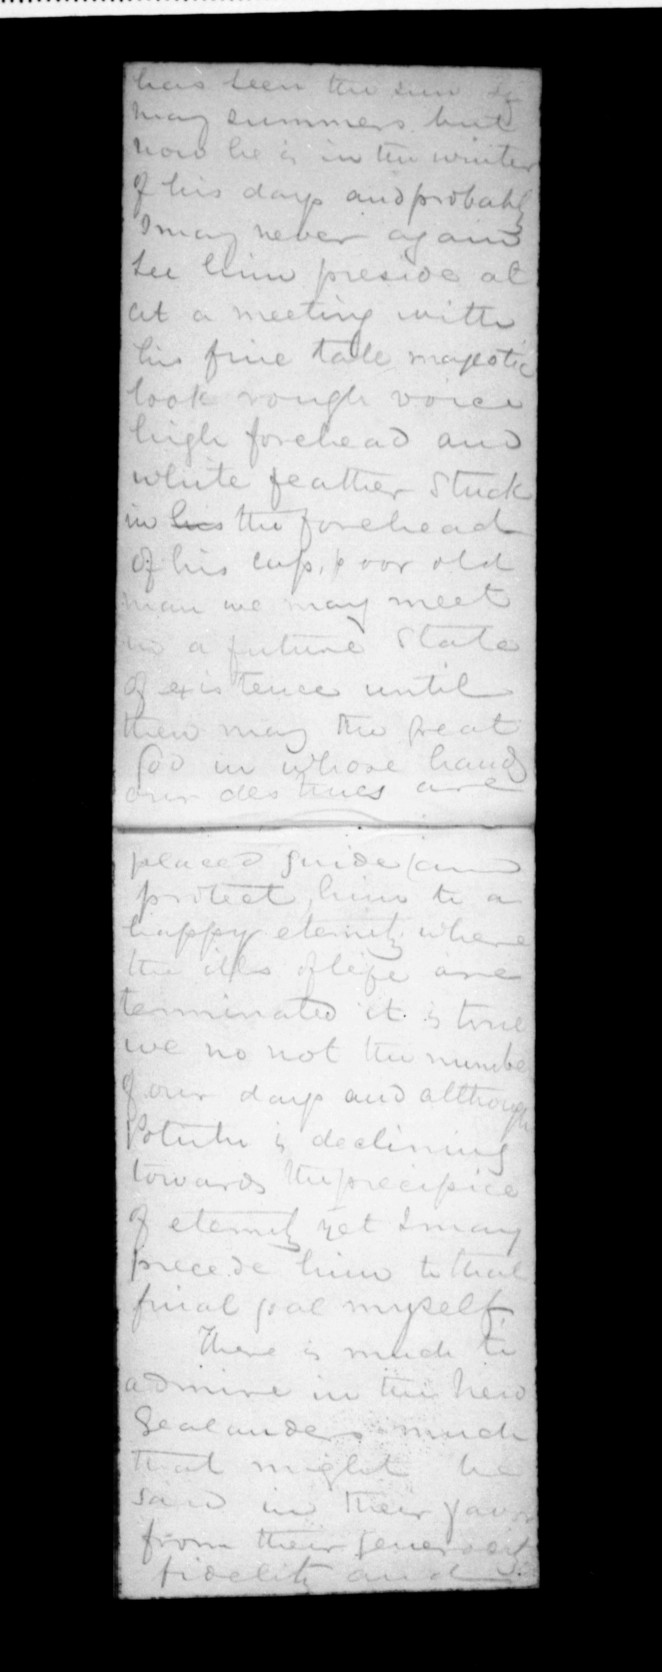 has seen the sun of
many summers but
now he is in the winter
of his days and probably
I may never again
see him preside at
at a meeting with
his fine tale majestic
look rough voice
high forehead and
white feather stuck
in his the forehead
of his cap, poor old
man we may meet
in a future state
of existence until
then may the great
God in whose hands
our destines are
placed guide and
protect him to a
happy eternity where
the ills of life are
terminated it is true
we no not the number
of our days and although
is declining
towards the precipice
of eternity yet I may
precede him to that
final goal myself.
There is much to
admire in the New
Zealanders much
that might be
said in their favor
from their generosity
fidelity and